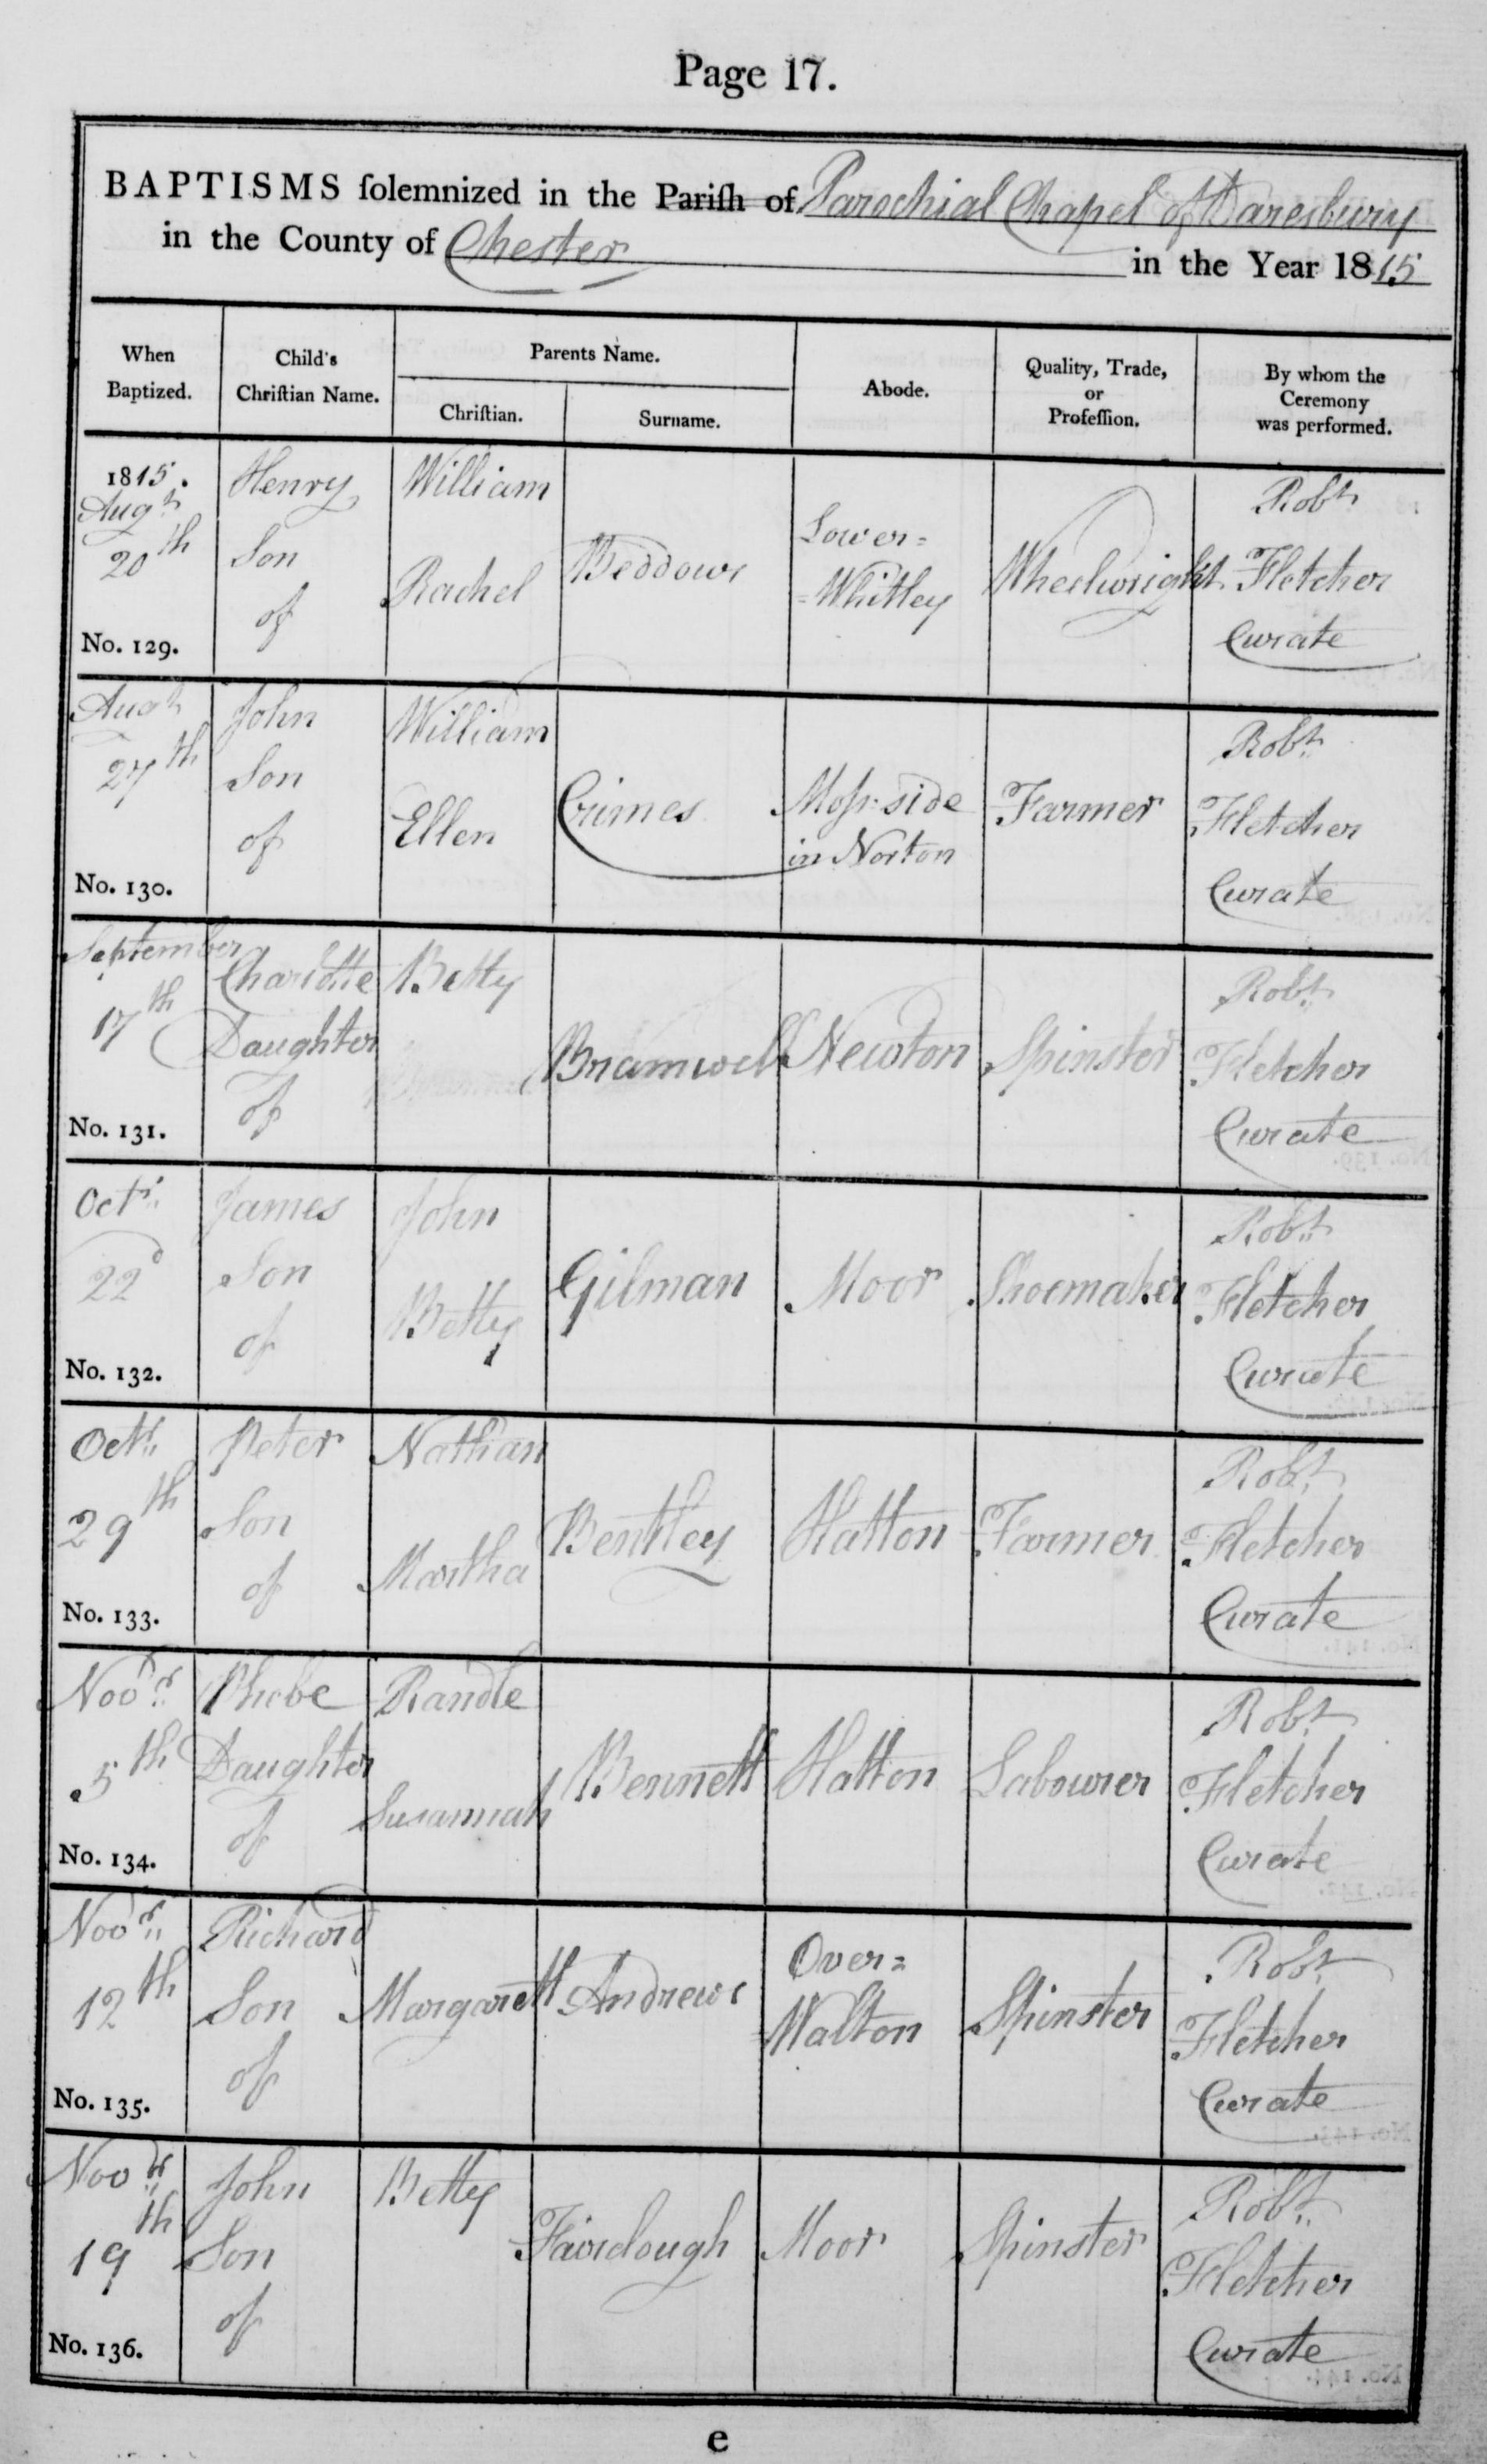 Page 17.
BAPTISMS ſolemnized in the Pariſh of Parochial Chapel of Daresbury
in the County of Chester in the Year 1815
When
Baptized.
Child's
Chriſtian Name.
Parents Name.
Chriſtian.
Surname.
Abode.
Quality, Trade,
or
Profeſſion.
By whom the
Ceremony
was performed.
1815.
Augt
20th
No. 129.
Henry
Son
of
William
Rachel
Beddows
Lower=
=Whitley
Wheelwright
Robt
Fletcher
Curate
Augt
27th
No. 130.
John
Son
of
William
Ellen
Crimes
Moſs-side
in Norton
Farmer
Robt
Fletcher
Curate
September
17th
No. 131.
Charlotte
Daughter
of
Betty
Bramwell
Newton
Spinster
Robt
Fletcher
Curate
Octr
22d
No. 132.
James
Son
of
John
Betty
Gilman
Moor
Shoemaker
Robt
Fletcher
Curate
Octr
29th
No. 133.
Peter
Son
of
Nathan
Martha
Bentley
Hatton
Farmer
Robt
Fletcher
Curate
Novr
5th
No. 134.
Phebe
Daughter
of
Randle
Susannah
Bennett
Hatton
Labourer
Robt
Fletcher
Curate
Novr
12th
No. 135.
Richard
Son
of
Margarett
Andrews
Over=
=Walton
Spinster
Robt
Fletcher
Curate
Novr
19th
No. 136.
John
Son
of
Betty
Fairclough
Moor
Spinster
Robt
Fletcher
Curate
e